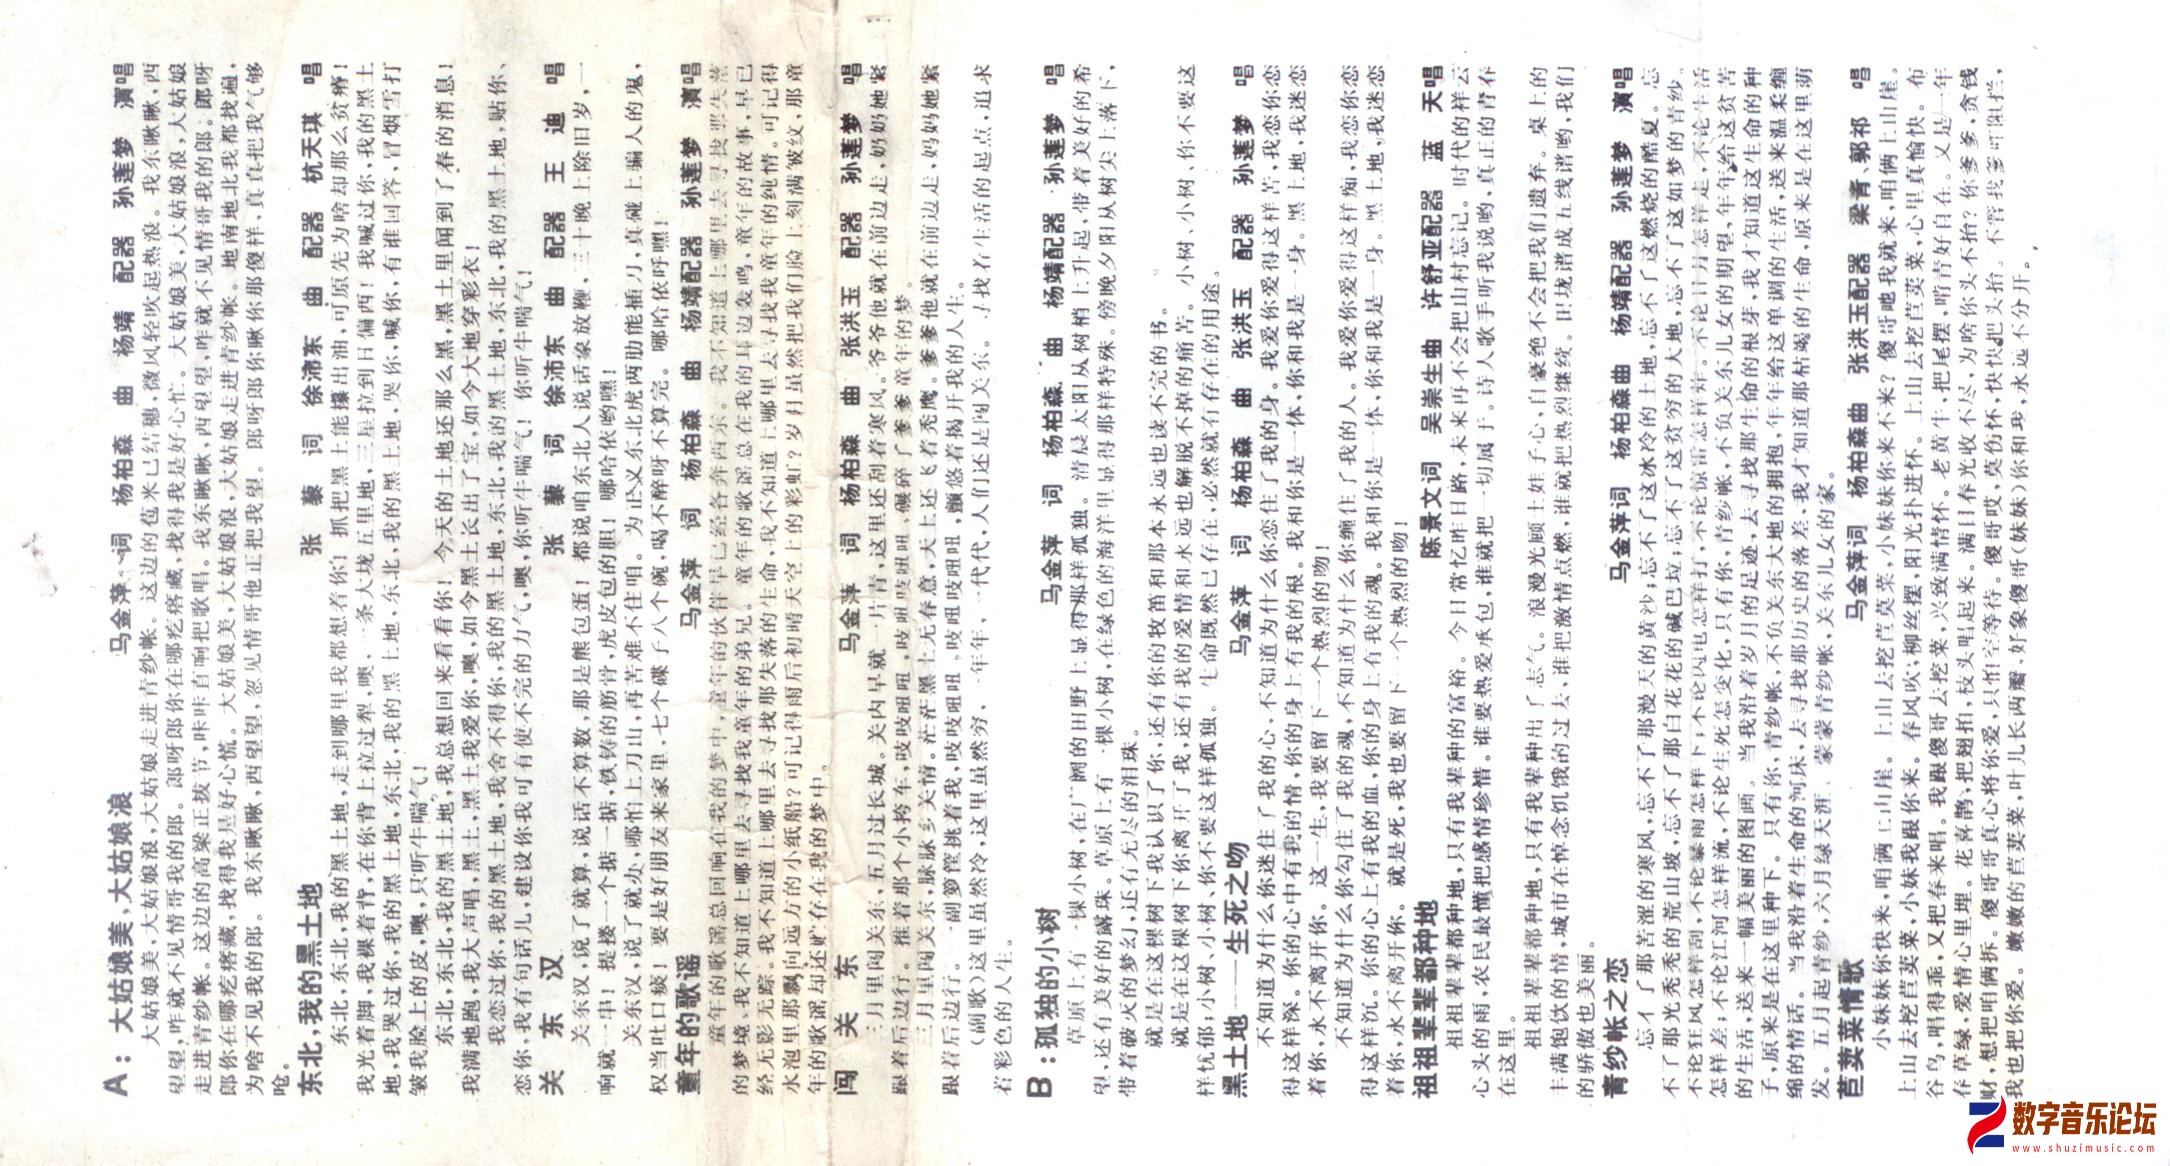 A：大姑娘美，大姑娘浪　马金萍 词　杨柏森 曲　杨靖 配器　孙莲梦 演唱
大姑娘美，大姑娘浪，大姑娘走进青纱帐。这边的苞米已结穗，微风轻吹起热浪。我东瞅瞅，西
望望，咋就不见情哥我的郎。郎呀郎你在哪疙瘩藏，找得我是好心忙。大姑娘美，大姑娘浪，大姑娘
走进青纱帐。这边的高粱正拔节，咔咔直响把歌唱。我东瞅瞅，西望望，咋就不见情哥我的郎。郎呀
郎你在哪疙瘩藏，找得我是好心慌。大姑娘美，大姑娘浪，大姑娘走进青纱帐。地南地北我都找遍，
为啥不见我的郎。我东瞅瞅，西望望，忽见情哥他正把我望。郎呀郎你瞅你那傻样，真真把我气够
呛。
东北，我的黑土地　张藜 词　徐沛东 曲 配器　杭天琪 唱
东北，东北，我的黑土地，走到哪里我都想着你！抓把黑土能攥出油，可原先为啥却那么贫瘠！
我光着脚，我裸着背，在你背上拉过犁，噢。一条大垅五里地，三星拉到日偏西！我喊过你，我的黑土
地，我哭过你，我的黑土地，东北，我的黑土地，东北，我的黑土地，哭你，喊你，有谁回答，冒烟雪打
皱我脸上的皮，噢，只听牛喘气！
东北，东北，我的黑土地，我总想回来看看你！今天的土地还那么黑，黑土里闻到了春的消息！
我满地跑，我大声唱，黑土，黑土我爱你，噢，如今黑土长出了宝，如今大地穿彩衣！
我恋过你，我的黑土地，我舍不得你，我的黑土地，东北，我的黑土地，东北，我的黑土地，贴你、
恋你，我有句话儿，建设你我可有使不完的力气，噢，你听牛喘气！你听牛喘气！
关东汉　张藜 词　徐沛东 曲 配器　王迪 唱
关东汉，说了就算，说话不算数，那是熊包蛋！都说咱东北人说话象放鞭，三十晚上除旧岁，一
啊就一串！提搂一个掂一掂，铁铸的筋骨，虎皮包的胆！哪哈依哟嘿！
关东汉，说了就办，哪怕上刀山，再苦难不住咱。为正义东北虎两肋能插刀，真碰上骗人的鬼，
权当吐口痰！要是好朋友来家里，七个碟子八个碗，喝不醉呀不算完。哪哈依呼嘿！
童年的歌谣　马金萍 词　杨柏森 曲　杨靖配器　孙莲梦 演唱
童年的歌谣总回响在我的梦中，童年的伙伴早已经各奔西东。我不知道上哪里去寻找那失落
的梦境、我不知道上哪里去寻找我童年的弟兄。童年的歌谣总在我的耳边轰鸣、童年的故事，早已
经无影无踪。我不知道上哪里去寻找那失落的生命，我不知道上哪里去寻找我童年的纯情。可记得
水泡里那飘向远方的小纸船？可记得雨后初晴天空上的彩虹？岁月虽然把我们脸上刻满皱纹，那童
年的歌谣却还贮存在我的梦中。
闯关东　马金萍 词　杨柏森 曲　张洪玉 配器　孙莲梦 唱
三月里闯关东，五月过长城。关内早就一片青，这里还刮着寒风。爷爷他就在前边走，奶奶她紧
跟着后边行。推着那个小挎车，吱吱吜，吱吜吱吱吜、碾碎了爹爹童年的梦。
三月里闯关东，脉脉乡关情。茫茫黑土无春意，天上还飞着秃鹰。爹爹他就在前边走，妈妈她紧
跟着后边行。一副箩筐挑着我，吱吱吱吜，吱吜吱吱吜，颤悠着揭开我的人生。
（副歌）这里虽然冷，这里虽然穷、一年年，一代代，人们还是闯关东。寻找着生活的起点，追求
着彩色的人生。
B：孤独的小树　马金萍 词　杨柏森 曲　杨靖配器　孙莲梦 唱
草原上有一棵小树，在广阔的田野上显得那样孤独。清晨太阳从树梢上升起，带着美好的希
望，还有美好的露珠。草原上有一棵小树，在绿色的海洋里显得那样特殊。傍晚夕阳从树尖上落下，
带着破灭的梦幻，还有无尽的泪珠。
就是在这棵树下我认识了你，还有你的牧笛和那本永远也读不完的书。
就是在这棵树下你离开了我，还有我的爱情和永远也解脱不掉的痛苦。小树、小树、你不要这
样忧郁；小树、小树、你不要这样孤独。生命既然已存在，必然就有存在的用途。
黑土地——生死之吻　马金萍 词　杨柏森 曲　张洪玉 配器　孙莲梦 唱
不知道为什么你迷住了我的心，不知道为什么你恋住了我的身。我爱你爱得这样苦，我恋你恋
得这样深。你的心中有我的情，你的身上有我的根。我和你是一体，你和我是一身。黑土地，我迷恋
着你，永不离开你。这一生，我要留下一个热烈的吻！
不知道为什么你勾住了我的魂，不知道为什么你缠住了我的人。我爱你爱得这样痴，我恋你恋
得这样沉。你的心上有我的血，你的身上有我的魂。我和你是一体，你和我是一身。黑土地，我迷恋
着你，永不离开你。就是死，我也要留下一个热烈的吻！
祖祖辈辈都种地　陈景文词　吴崇生曲　许舒亚配器　蓝天唱
祖祖辈辈都种地，只有我辈种的富裕。今日常忆昨日路，未来再不会把山村忘记。时代的样云
心头的雨，农民最懂把感情珍惜。谁要热爱承包，谁就把一切属于。诗人歌手听我说哟，真正的青春
在这里。
祖祖辈辈都种地，只有我辈种出了志气。浪漫光顾土娃子心，自豪绝不会把我们遗弃。桌上的
丰满饱饮的情，城市在悼念饥饿的过去。谁把激情点燃，谁就把热烈继续。田垅谱成五线谱哟，我们
的骄傲也美丽。
青纱帐之恋　马金萍词　杨柏森曲　杨靖配器　孙莲梦 演唱
忘不了那苦涩的寒风，忘不了那漫天的黄沙；忘不了这冰冷的土地，忘不了这燃烧的酷夏。忘
不了那光秃秃的荒山坡，忘不了那白花花的碱巴垃；忘不了这贫穷的大地，忘不了这如梦的青纱。
不论狂风怎样刮，不论暴雨怎样下；不论闪电怎样打，不论惊雷怎样炸。不论日月怎样走，不论生活
怎样差；不论江河怎样流，不论生死怎变化，只有你，青纱帐，不负关东儿女的期望，年年给这贫苦
的生活，送来一幅美丽的图画。当我沿着岁月的足迹，去寻找那生命的根芽，我才知道这生命的种
子，原来是在这里种下。只有你，青纱帐，不负关东大地的拥抱，年年给这单调的生活，送来温柔缠
绵的情话。当我沿着生命的河床，去寻找那历史的落差，我才知道那枯竭的生命，原来是在这里萌
发。五月起青纱，六月绿天涯，蒙蒙青纱帐，关东儿女的家。
苣荬菜情歌　马金萍词　杨柏森曲　张洪玉配器　梁青、郭祁 唱
小妹妹你快来，咱俩上山崖。上山去挖苣荬菜，小妹妹你来不来？傻哥吔我就来，咱俩上山崖。
上山去挖苣荬菜，小妹我跟你来。春风吹；柳丝摆，阳光扑进怀。上山去挖苣荬菜，心里真愉快。布
谷鸟，唱得乖，又把春来唱。我跟傻哥去挖菜，兴致满情怀。老黄牛，把尾摆，啃青好自在。又是一年
春草绿，爱情心里埋。花喜鹊，把翅拍，枝头唱起来。满目春光收不尽，为啥你头不抬？你爹爹，贪钱
财，想把咱俩拆。傻哥哥真心将你爱，只怕空等待。傻哥哎，莫伤怀，快快把头抬。不管我爹咋阻拦，
我也把你爱。嫩嫩的苣荬菜，叶儿长两瓣、好象傻哥（妹妹）你和我，永远不分开。
数字音乐论坛
www.shuzimusic.com